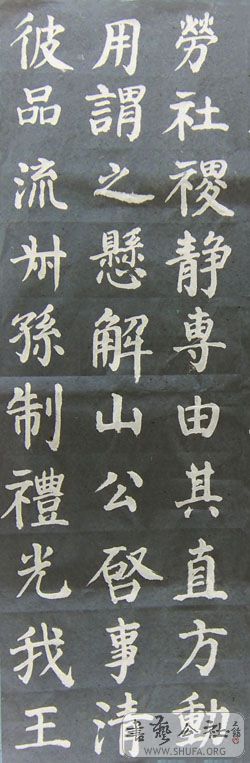 勞社禝静専由其直方動
用謂之懸解山公啓事清
彼品流叔孫制禮光我王
書藝公社
WWW.SHUFA.ORG